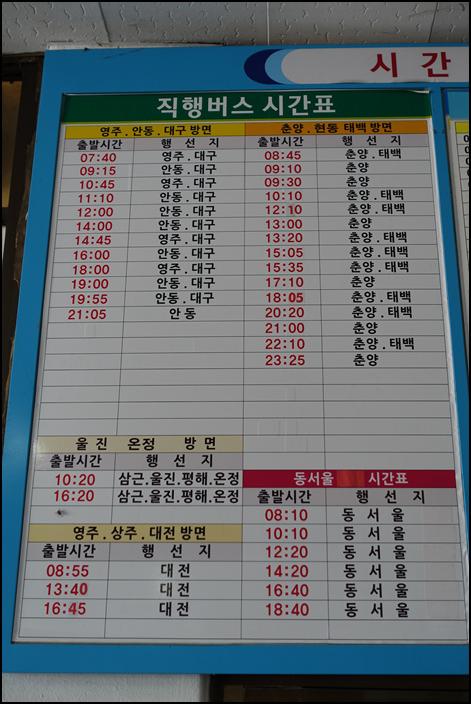 시 간
직행버스 시간표
영주.안동.대구 방면
출발시간 행 선 지
07:40 영주.대구
09:15 안동.대구
10:45 영주.대구
11:10 안동.대구
12:00 안동.대구
14:00 안동.대구
14:45 영주.대구
16:00 안동.대구
18:00 영주.대구
19:00 안동.대구
19:55 안동.대구
21:05 안동
춘양.현동 태백 방면
출발시간 행 선 지
08:45 춘양.태백
09:10 춘양
09:30 춘양
10:10 춘양.태백
12:10 춘양.태백
13:00 춘양
13:20 춘양.태백
15:05 춘양.태백
15:35 춘양.태백
17:10 춘양
18:05 춘양.태백
20:20 춘양.태백
21:00 춘양
22:10 춘양.태백
23:25 춘양
울 진 온정 방 면
출발시간 행 선 지
10:20 삼근.울진.평해.온정
16:20 삼근.울진.평해.온정
영주.상주.대전 방면
출발시간 행 선 지
08:55 대전
13:40 대전
16:45 대전
동서울 시간표
출발시간 행 선 지
08:10 동 서 울
10:10 동 서 울
12:20 동 서 울
14:20 동 서 울
16:40 동 서 울
18:40 동 서 울